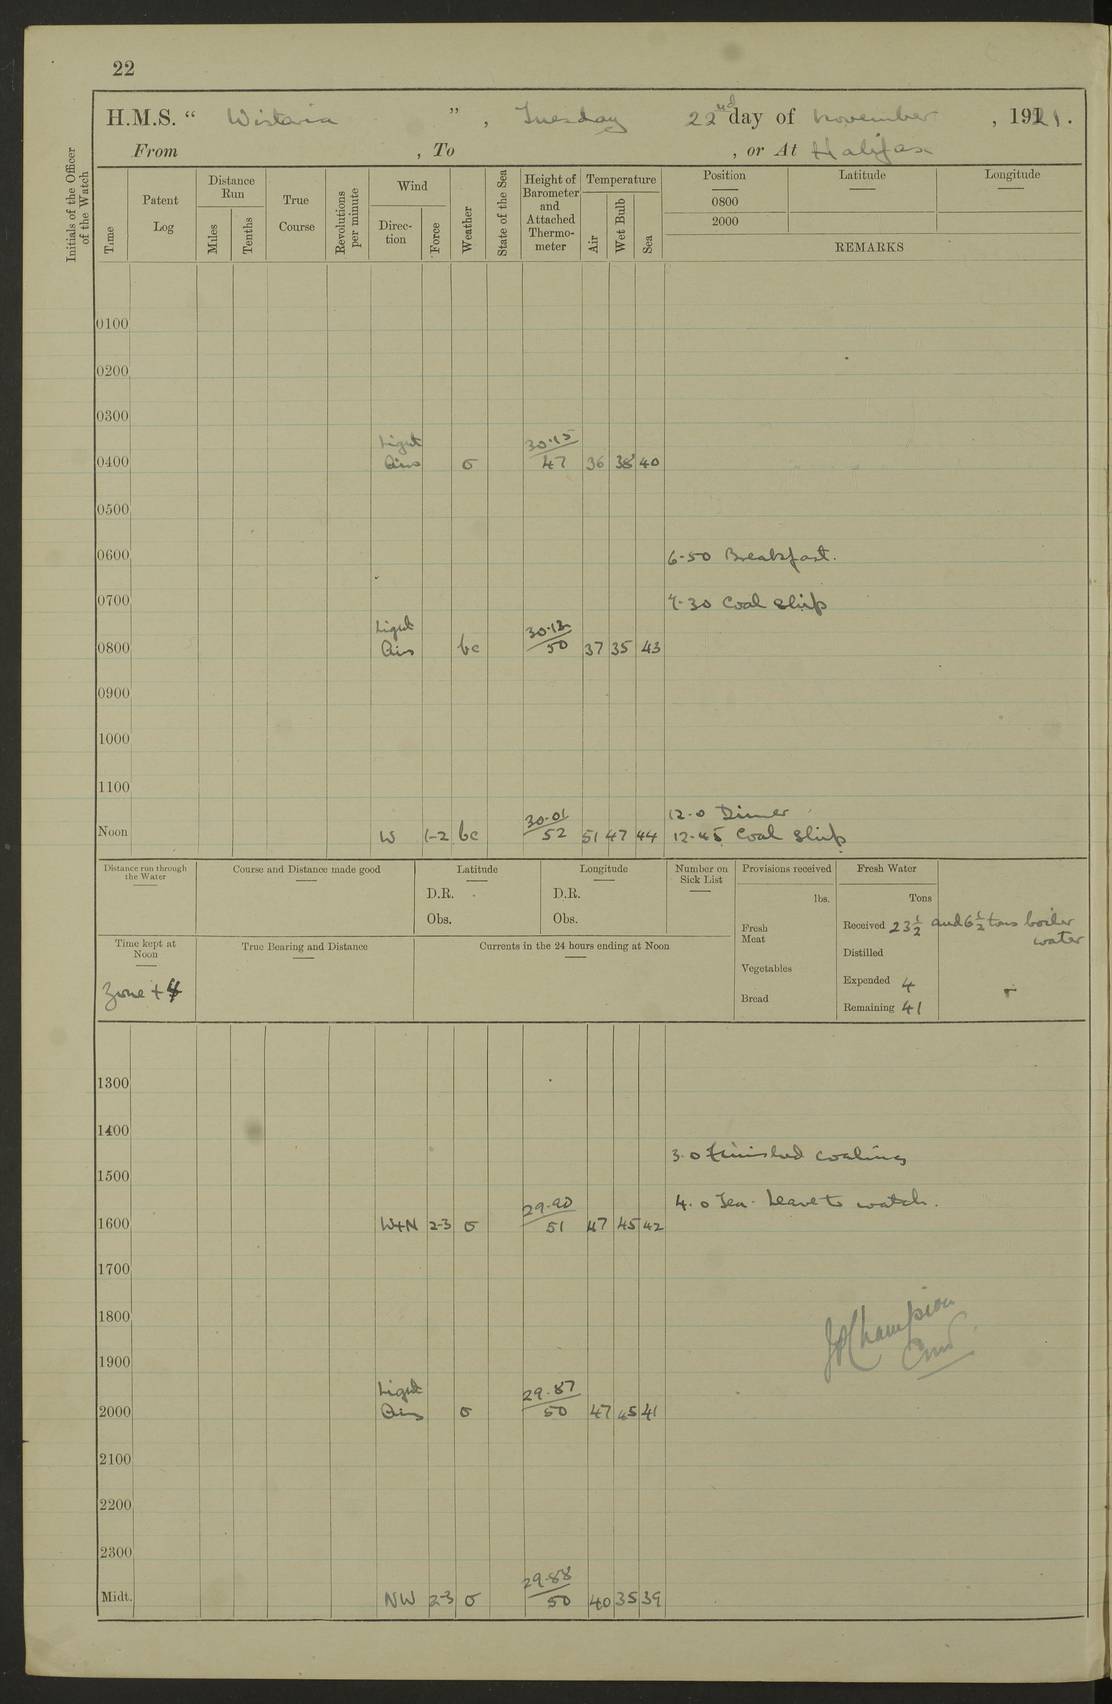 22
H.M.S. “ Wistaria ” , Tuesday 22nd day of November , 1921.
From , To , or At Halifax
Initials of the Officer of the Watch
Time
Patent Log
Distance Run
Miles
Tenths
True Course
Revolutions per minute
Wind
Direction
Force
Weather
State of the Sea
Height of Barometer and Attached Thermometer
Temperature
Air
Wet Bulb
Sea
Position
0800
2000
Latitude
Longitude
REMARKS
0100
0200
0300
Light 30.15
0400 Airs o 47 36 38 40
0500
0600 6-50 Breakfast.
0700 7-30 Coal ship
Light 30.12
0800 Airs bc 50 37 35 43
0900
1000
1100
30.01 12-0 Dinner
Noon W 1-2 bc 52 51 47 44 12-45 Coal ship
Distance run through the Water
Course and Distance made good
Latitude
D.R.
Obs.
Longitude
D.R.
Obs.
Number on Sick List
Provisions received
lbs.
Fresh Meat
Vegetables
Bread
Fresh Water
Tons
Received 23½ and 6½ tons boiler water
Distilled
Expended 4
Remaining 41
Time kept at Noon
Zone + 4
True Bearing and Distance
Currents in the 24 hours ending at Noon
1300
1400
3.0 Finished coaling
1500
29.90 4.0 Tea. Leave to watch.
1600 WxN 2-3 o 51 47 45 42
1700
1800
JP Champion
Cmdr
1900
Light 29.87
2000 Airs o 50 47 45 41
2100
2200
2300
29.88
Midt. NW 2-3 o 50 40 35 39